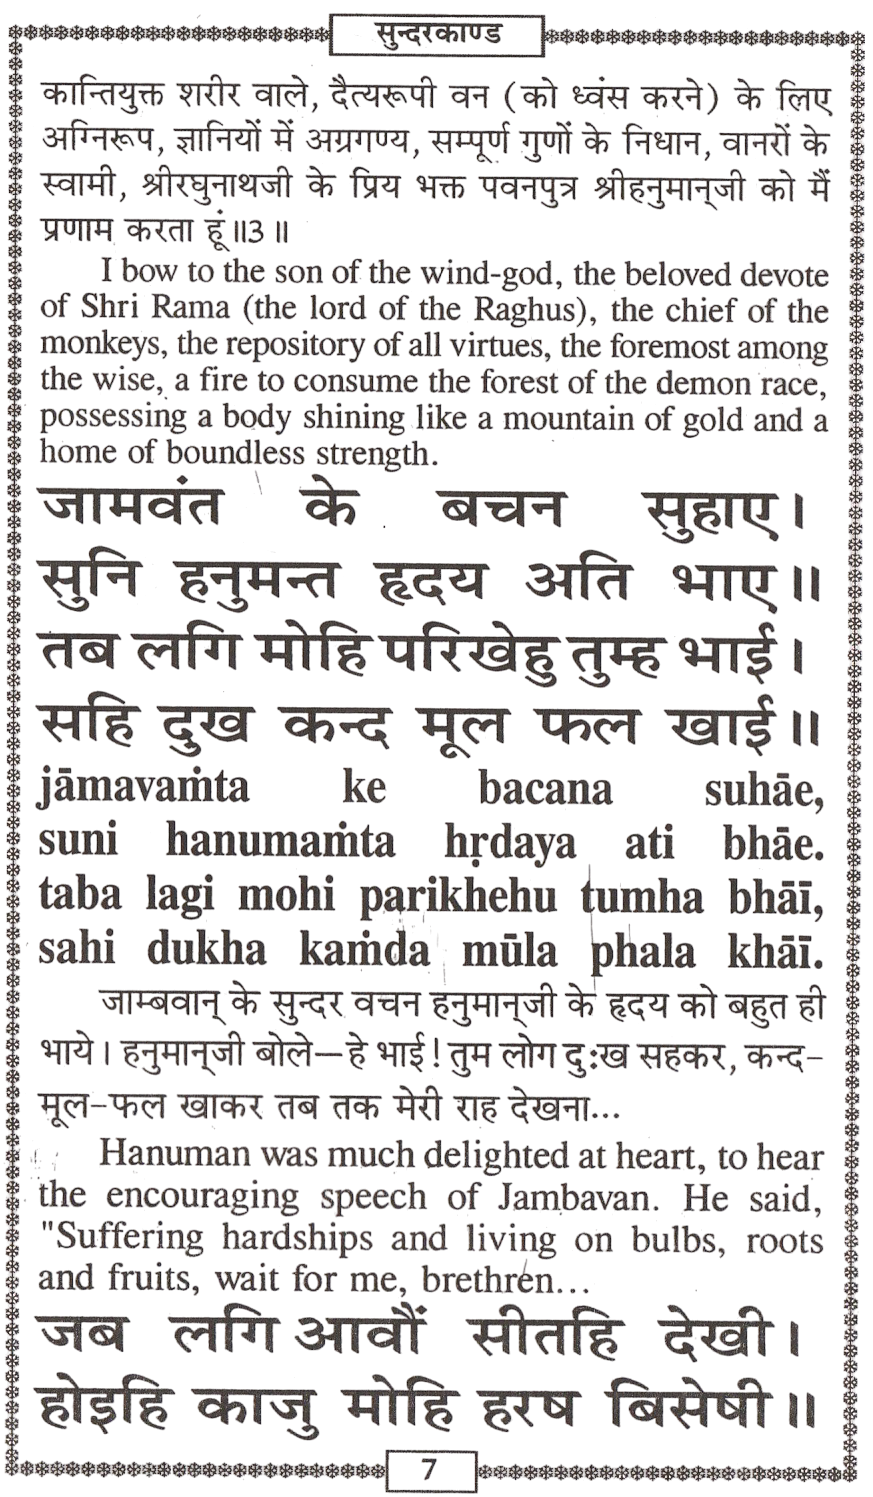 सुन्दरकाण्ड
कान्तियुक्त शरीर वाले, दैत्यरूपी वन (को ध्वंस करने) के लिए
अग्निरूप, ज्ञानियों में अग्रगण्य, सम्पूर्ण गुणों के निधान, वानरों के
स्वामी, श्रीरघुनाथजी के प्रिय भक्त पवनपुत्र श्रीहनुमान्‌जी को मैं
प्रणाम करता हूं॥3॥
I bow to the son of the wind-god, the beloved devote
of Shri Rama (the lord of the Raghus), the chief of the
monkeys, the repository of all virtues, the foremost among
the wise, a fire to consume the forest of the demon race,
possessing a body shining like a mountain of gold and a
home of boundless strength.
जामवंत के बचन सुहाए।
सुनि हनुमन्त हृदय अति भाए॥
तब लगि मोहि परिखेहु तुम्ह भाई।
सहि दुख कन्द मूल फल खाई॥
jāmavaṁta ke bacana suhāe,
suni hanumaṁta hṛdaya ati bhāe.
taba lagi mohi parikhehu tumha bhāī,
sahi dukha kaṁda mūla phala khāī.
जाम्बवान् के सुन्दर वचन हनुमान्‌जी के हृदय को बहुत ही
भाये। हनुमान्‌जी बोले—हे भाई! तुम लोग दुःख सहकर, कन्द-
मूल-फल खाकर तब तक मेरी राह देखना...
Hanuman was much delighted at heart, to hear
the encouraging speech of Jambavan. He said,
"Suffering hardships and living on bulbs, roots
and fruits, wait for me, brethren...
जब लगि आवौं सीतहि देखी।
होइहि काजु मोहि हरष बिसेषी॥
7